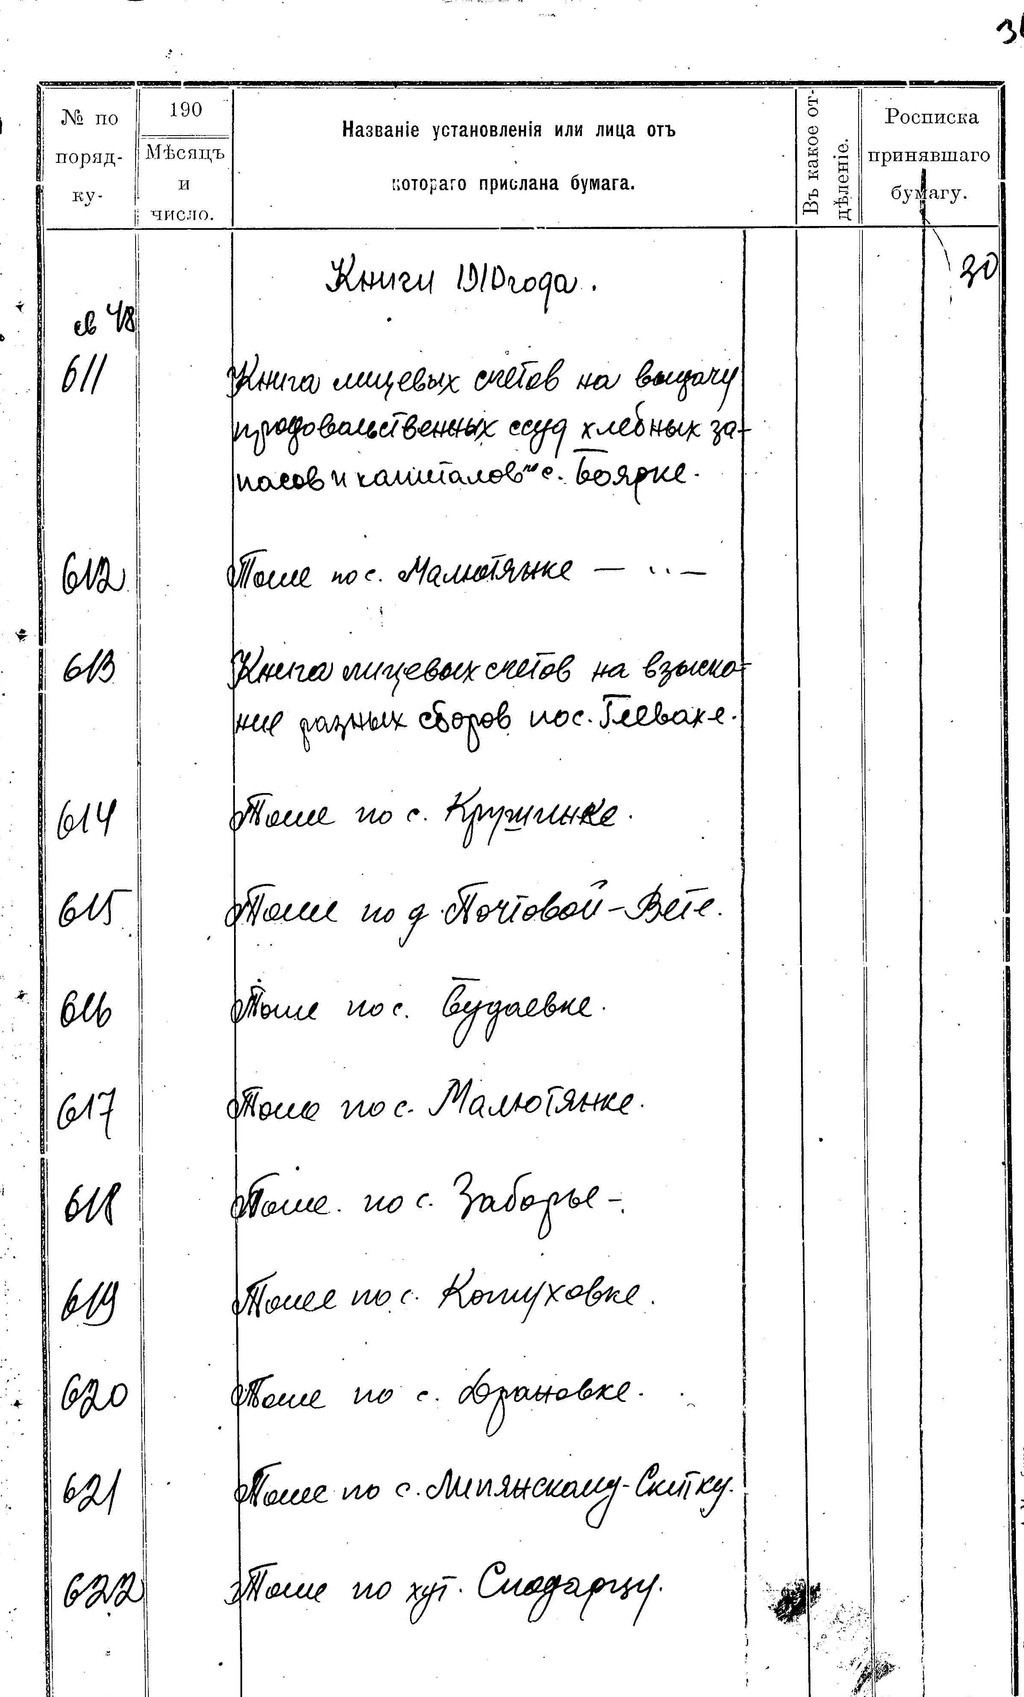 № по поряд- ку-
190
Мѣсяцъ и число.
Названіе установленія или лица отъ
котораго прислана бумага.
Въ какое от-
дѣленіе.
Росписка принявшаго бумагу.
Книги 1910 года.
30
св 48
611 Книга лицевых счетов на выдачу
продовольственных ссуд хлебных за-
пасов и капиталов по с. Боярке.
612 Тоже по с. Малютянке — ·· —
613 Книга лицевых счетов на взыска-
ние разных сборов по с. Глевахе.
614 Тоже по с. Кружинке.
615 Тоже по д. Почтовой-Вете.
616 Тоже по с. Будаевке.
617 Тоже по с. Малютянке.
618 Тоже по с. Заборье-.
619 Тоже по с. Кожуховке.
620 Тоже по с.
621 Тоже по с. Липянскому-Скитку.
622 Тоже по хут.